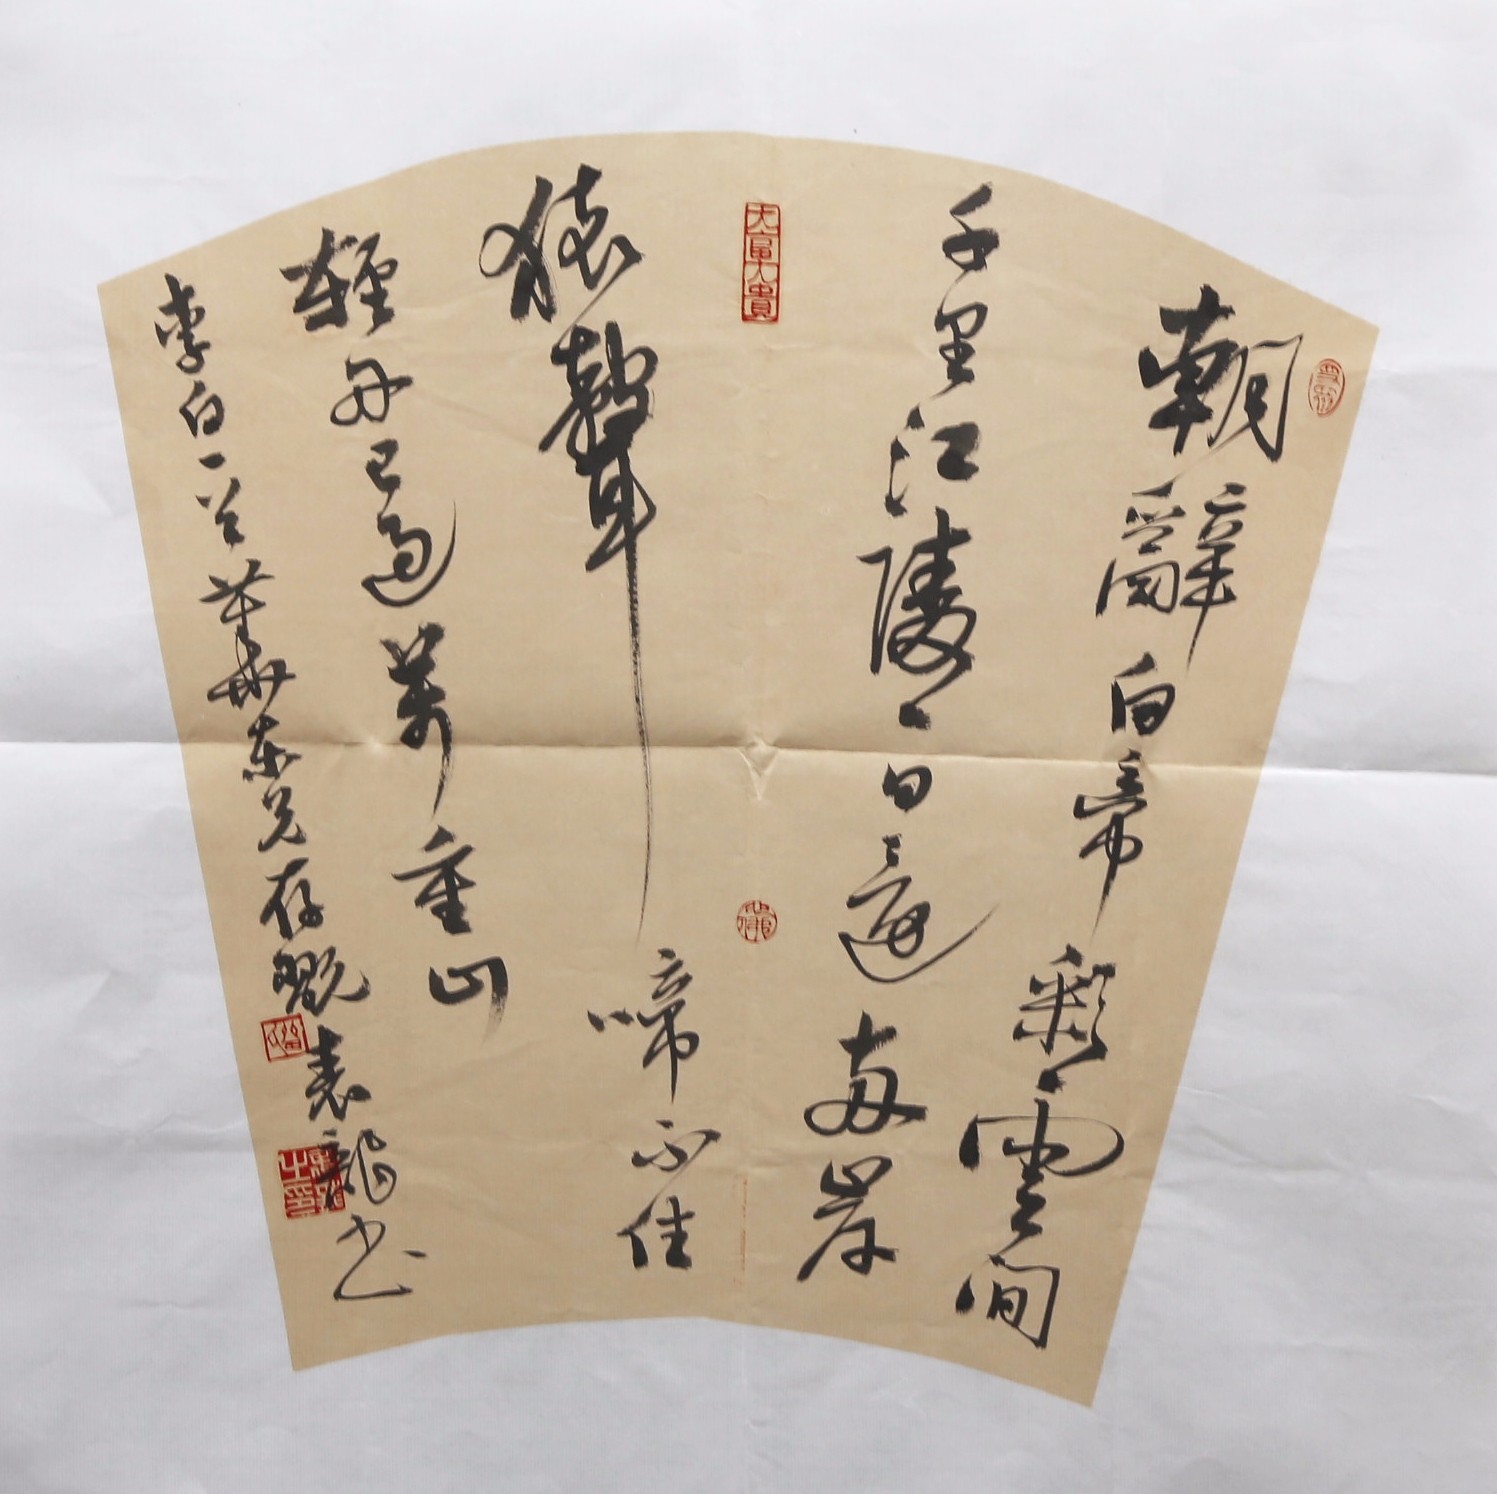 朝辭白帝彩雲間
千里江陵一日還兩岸
大富大貴
猿聲啼不住
輕舟已過萬重山
李白一首華東兄存翫袁龍書